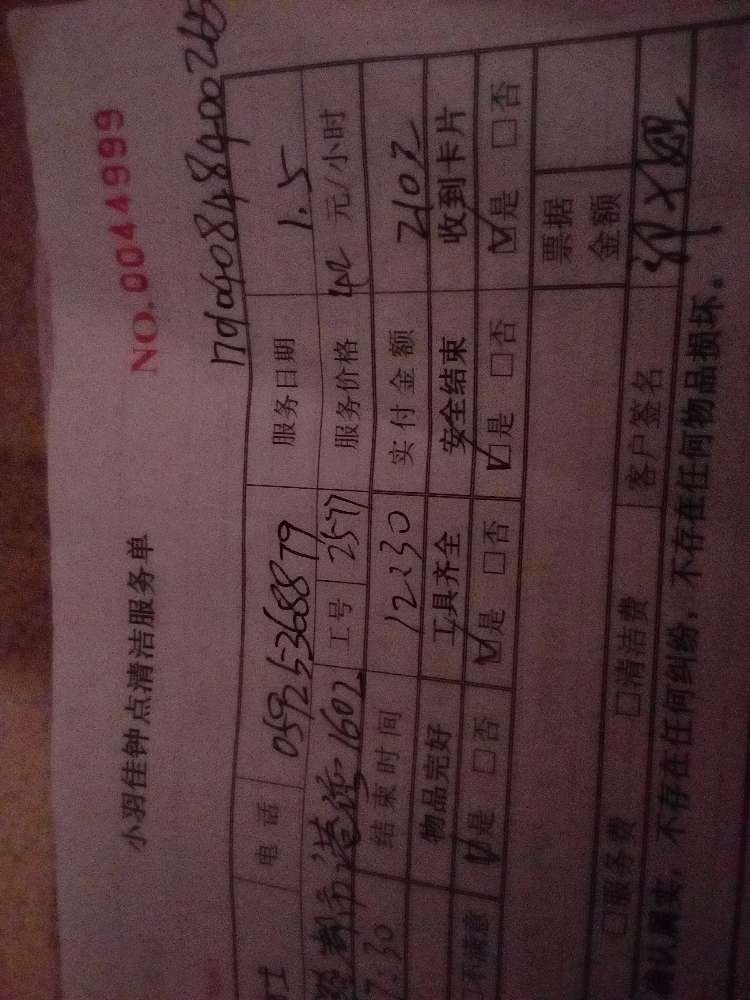 NO.0044999
小羽佳钟点清洁服务单
电话 05925368879 服务日期 1.5
都市港湾1602 工号 2577 服务价格 42 元/小时
7:30 结束时间 12:30 实付金额 210元
物品完好 工具齐全 安全结束 收到卡片
□不满意 ☑是 □否 ☑是 □否 ☑是 □否 ☑是 □否
票据金额
□服务费 □清洁费 客户签名
确认属实，不存在任何纠纷，不存在任何物品损坏。